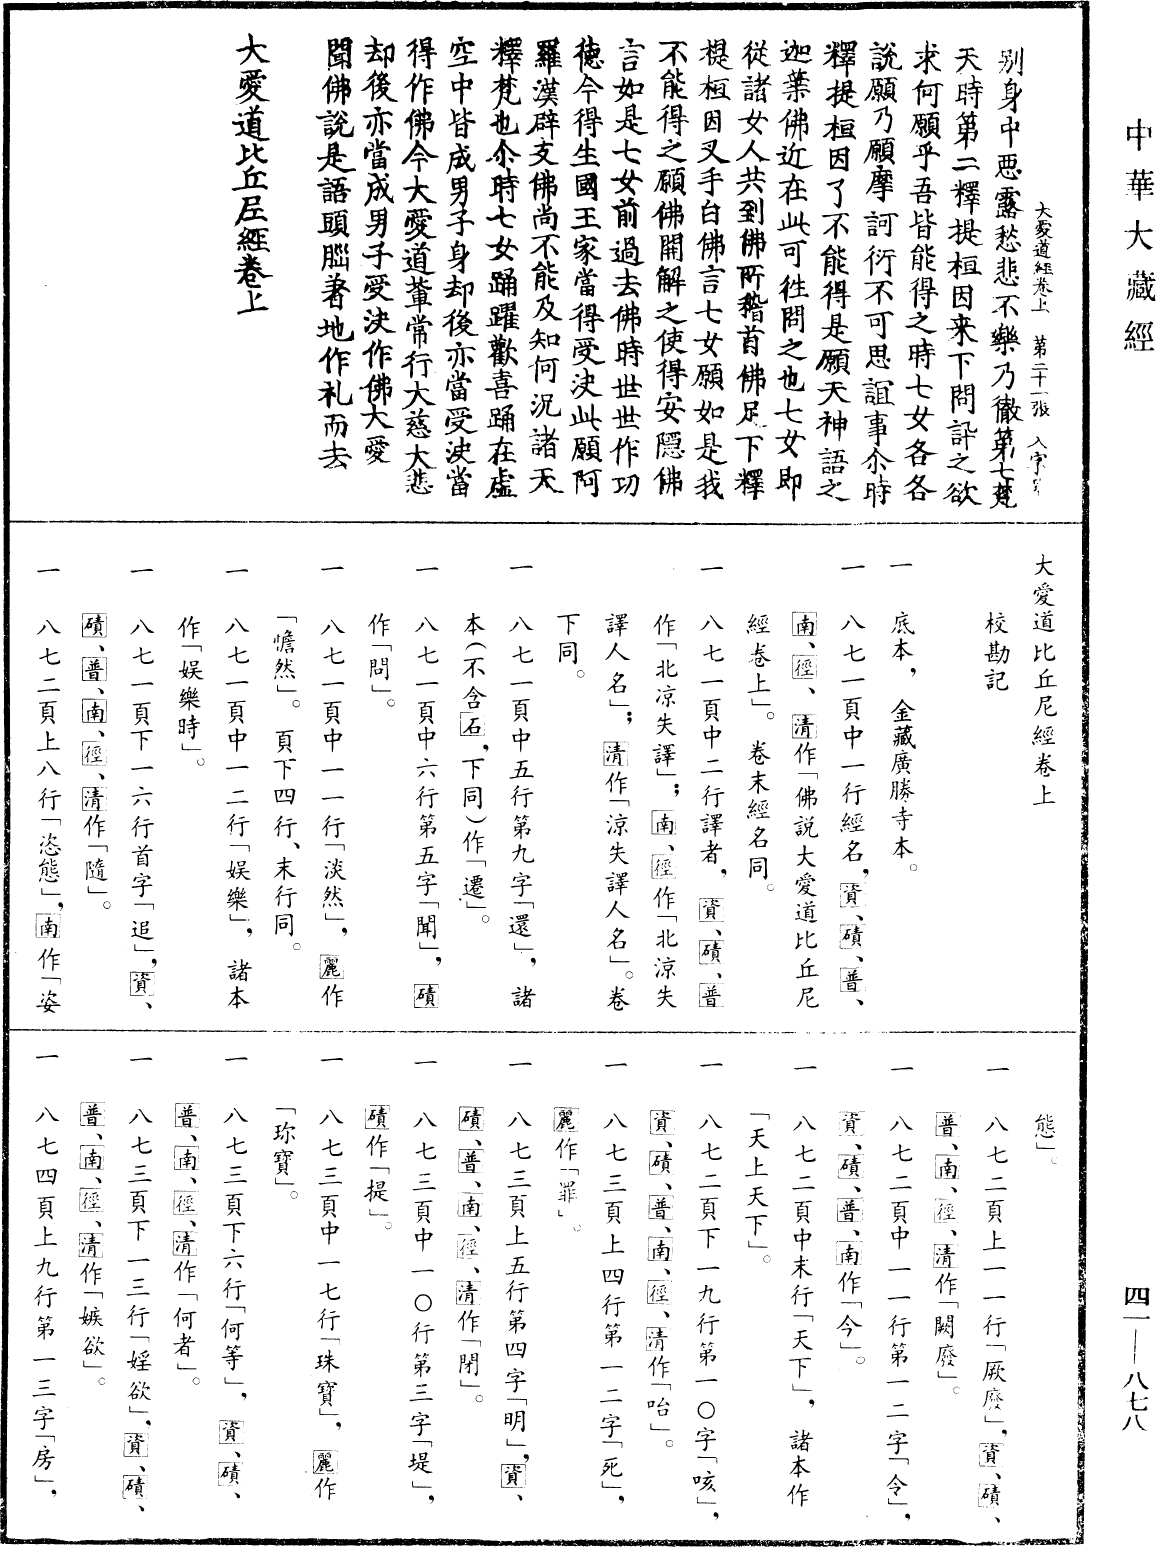 中華大藏經
四一—八七八
别身中惡露愁悲不樂乃徹第七梵
大愛道經卷上　第二十一張　入字号
天時第二釋提桓因来下問訊之欲
求何願乎吾皆能得之時七女各各
說願乃願摩訶衍不可思誼事尒時
釋提桓因了不能得是願天神語之
迦葉佛近在此可往問之也七女即
從諸女人共到佛所稽首佛足下釋
提桓因叉手白佛言七女願如是我
不能得之願佛開解之使得安隱佛
言如是七女前過去佛時世世作功
德今得生國王家當得受決此願阿
羅漢辟支佛尚不能及知何況諸天
釋梵也尒時七女踊躍歡喜踊在虛
空中皆成男子身却後亦當受決當
得作佛今大愛道輩常行大慈大悲
却後亦當成男子受決作佛大愛
聞佛說是語頭腦著地作礼而去
大愛道比丘尼經卷上
大愛道比丘尼經卷上
校勘記
一　底本，金藏廣勝寺本。
一　八七一頁中一行經名，資、磧、普、
南、徑、清作「佛說大愛道比丘尼
經卷上」。卷末經名同。
一　八七一頁中二行譯者，資、磧、普
作「北凉失譯」；南、徑作「北凉失
譯人名」；清作「凉失譯人名」。卷
下同。
一　八七一頁中五行第九字「還」，諸
本（不含石，下同）作「遷」。
一　八七一頁中六行第五字「聞」，磧
作「問」。
一　八七一頁中一一行「淡然」，麗作
「憺然」。頁下四行、末行同。
一　八七一頁中一二行「娱樂」，諸本
作「娱樂時」。
一　八七一頁下一六行首字「追」，資、
磧、普、南、徑、清作「隨」。
一　八七二頁上八行「恣態」，南作「姿
態」。
一　八七二頁上一一行「厥廢」，資、磧、
普、南、徑、清作「闕廢」。
一　八七二頁中一一行第一二字「令」，
資、磧、普、南作「今」。
一　八七二頁中末行「天下」，諸本作
「天上天下」。
一　八七二頁下一九行第一〇字「咳」，
資、磧、普、南、徑、清作「咍」。
一　八七三頁上四行第一二字「死」，
麗作「罪」。
一　八七三頁上五行第四字「明」，資、
磧、普、南、徑、清作「閉」。
一　八七三頁中一〇行第三字「堤」，
磧作「提」。
一　八七三頁中一七行「珠寶」，麗作
「珎寶」。
一　八七三頁下六行「何等」，資、磧、
普、南、徑、清作「何者」。
一　八七三頁下一三行「婬欲」，資、磧、
普、南、徑、清作「嫉欲」。
一　八七四頁上九行第一三字「房」，